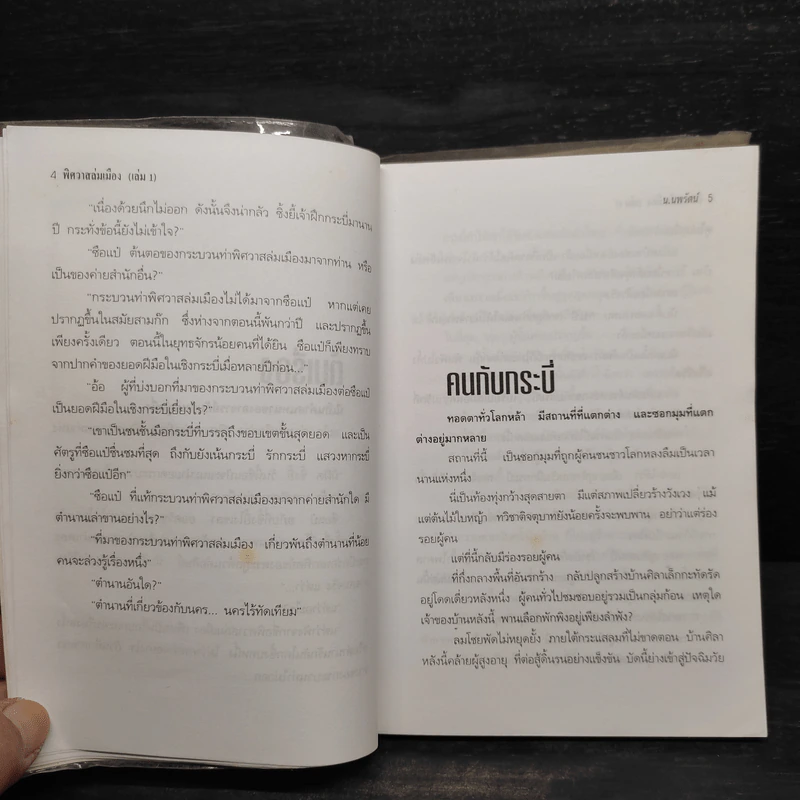 4 พิศวาสล่มเมือง (เล่ม 1)
"เนื่องด้วยนึกไม่ออก ดังนั้นจึงน่ากลัว ซิ้งยี้เจ้าฝึกกระบี่มานาน
ปี กระทั่งข้อนี้ยังไม่เข้าใจ?"
"ซือแป๋ ต้นตอของกระบวนท่าพิศวาสล่มเมืองมาจากท่าน หรือ
เป็นของค่ายสำนักอื่น?"
"กระบวนท่าพิศวาสล่มเมืองไม่ได้มาจากซือแป๋ หากแต่เคย
ปรากฏขึ้นในสมัยสามก๊ก ซึ่งห่างจากตอนนี้พันกว่าปี และปรากฏขึ้น
เพียงครั้งเดียว ตอนนี้ในยุทธจักรน้อยคนที่ได้ยิน ซือแป๋ก็เพียงทราบ
จากปากคำของยอดฝีมือในเชิงกระบี่เมื่อหลายปีก่อน..."
"อ้อ ผู้ที่บ่งบอกที่มาของกระบวนท่าพิศวาสล่มเมืองต่อซือแป๋
เป็นยอดฝีมือในเชิงกระบี่เยี่ยงไร?"
"เขาเป็นชนชั้นมือกระบี่ที่บรรลุถึงขอบเขตขั้นสุดยอด และเป็น
ศัตรูที่ซือแป๋ชื่นชมที่สุด ถึงกับยังเน้นกระบี่ รักกระบี่ แสวงหากระบี่
ยิ่งกว่าซือแป๋อีก"
"ซือแป๋ ที่แท้กระบวนท่าพิศวาสล่มเมืองมาจากค่ายสำนักใด มี
ตำนานเล่าขานอย่างไร?"
"ที่มาของกระบวนท่าพิศวาสล่มเมือง เกี่ยวพันถึงตำนานที่น้อย
คนจะล่วงรู้เรื่องหนึ่ง"
"ตำนานอันใด?"
"ตำนานที่เกี่ยวข้องกับนคร... นครไร้ทัดเทียม"
น.นพรัตน์ 5
คนกับกระบี่
ทอดตาทั่วโลกหล้า มีสถานที่ที่แตกต่าง และซอกมุมที่แตก
ต่างอยู่มากหลาย
สถานที่นี้ เป็นซอกมุมที่ถูกผู้คนชนชาวโลกหลงลืมเป็นเวลา
นานแห่งหนึ่ง
นี่เป็นท้องทุ่งกว้างสุดสายตา มีแต่สภาพเปลี่ยวร้างวังเวง แม้
แต่ต้นไม้ใบหญ้า ทวิชาติจตุบาทยังน้อยครั้งจะพบพาน อย่าว่าแต่ร่อง
รอยผู้คน
แต่ที่นี้กลับมีร่องรอยผู้คน
ที่กึ่งกลางพื้นที่อันรกร้าง กลับปลูกสร้างบ้านศิลาเล็กกะทัดรัด
อยู่โดดเดี่ยวหลังหนึ่ง ผู้คนทั่วไปชมชอบอยู่รวมเป็นกลุ่มก้อน เหตุใด
เจ้าของบ้านหลังนี้ พานเลือกพักพิงอยู่เพียงลำพัง?
ลมโชยพัดไม่หยุดยั้ง ภายใต้กระแสลมที่ไม่ขาดตอน บ้านศิลา
หลังนี้คล้ายผู้สูงอายุ ที่ต่อสู้ดิ้นรนอย่างแข็งขัน บัดนี้ย่างเข้าสู่ปัจฉิมวัย